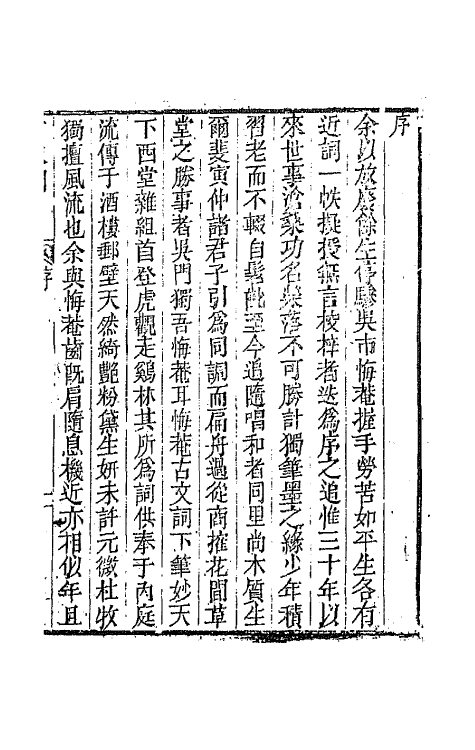 序
余以放廢餘生停驂吳市悔菴握手勞苦如平生各有
近詞一帙擬授無言棱梓者迭爲序之追惟三十年以
來世事滄桑功名舛落不可勝計獨筆墨之緣少年積
習老而不輟自髫齓至今追隨唱和者同里尚木質生
爾斐寅仲諸君子引爲同調而扁舟過從商搉花間草
堂之勝事者吳門獨吾悔菴耳悔菴古文詞下筆妙天
下西堂雜組首登虎觀走鷄林其所爲詞供奉于内庭
流傳于酒樓郵壁天然綺艷粉黛生妍未許元微杜牧
獨擅風流也余與悔菴齒旣肩隨息機近亦相似年且
序